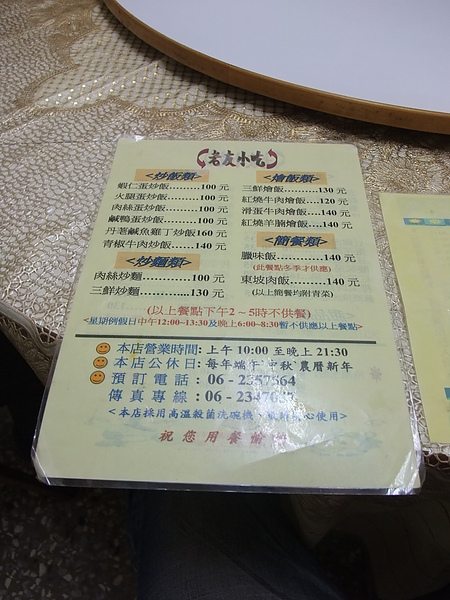 老友小吃
<炒飯類>
蝦仁蛋炒飯………100 元
火腿蛋炒飯………100 元
肉絲蛋炒飯………100 元
鹹鴨蛋炒飯………100 元
丹荖鹹魚雞丁炒飯160元
青椒牛肉炒飯……140 元
<炒麵類>
肉絲炒麵…………100 元
三鮮炒麵…………130 元
<燴飯類>
三鮮燴飯…………130 元
紅燒牛肉燴飯……120 元
滑蛋牛肉燴飯……140 元
紅燒羊腩燴飯……140 元
<簡餐類>
臘味飯……………140 元
(此餐點冬季才供應)
東坡肉飯…………140 元
(以上簡餐均附青菜)
(以上餐點下午2～5時不供餐)
<星期例假日中午12:00~13:30及晚上6:00~8:30暫不供應以上餐點>
本店營業時間: 上午 10:00 至晚上 21:30
本店公休日: 每年端午 中秋 農曆新年
預訂電話: 06 - 2357564
傳真專線: 06 - 2347
<本店採用高溫殺菌洗碗機、心使用>
祝您用餐愉